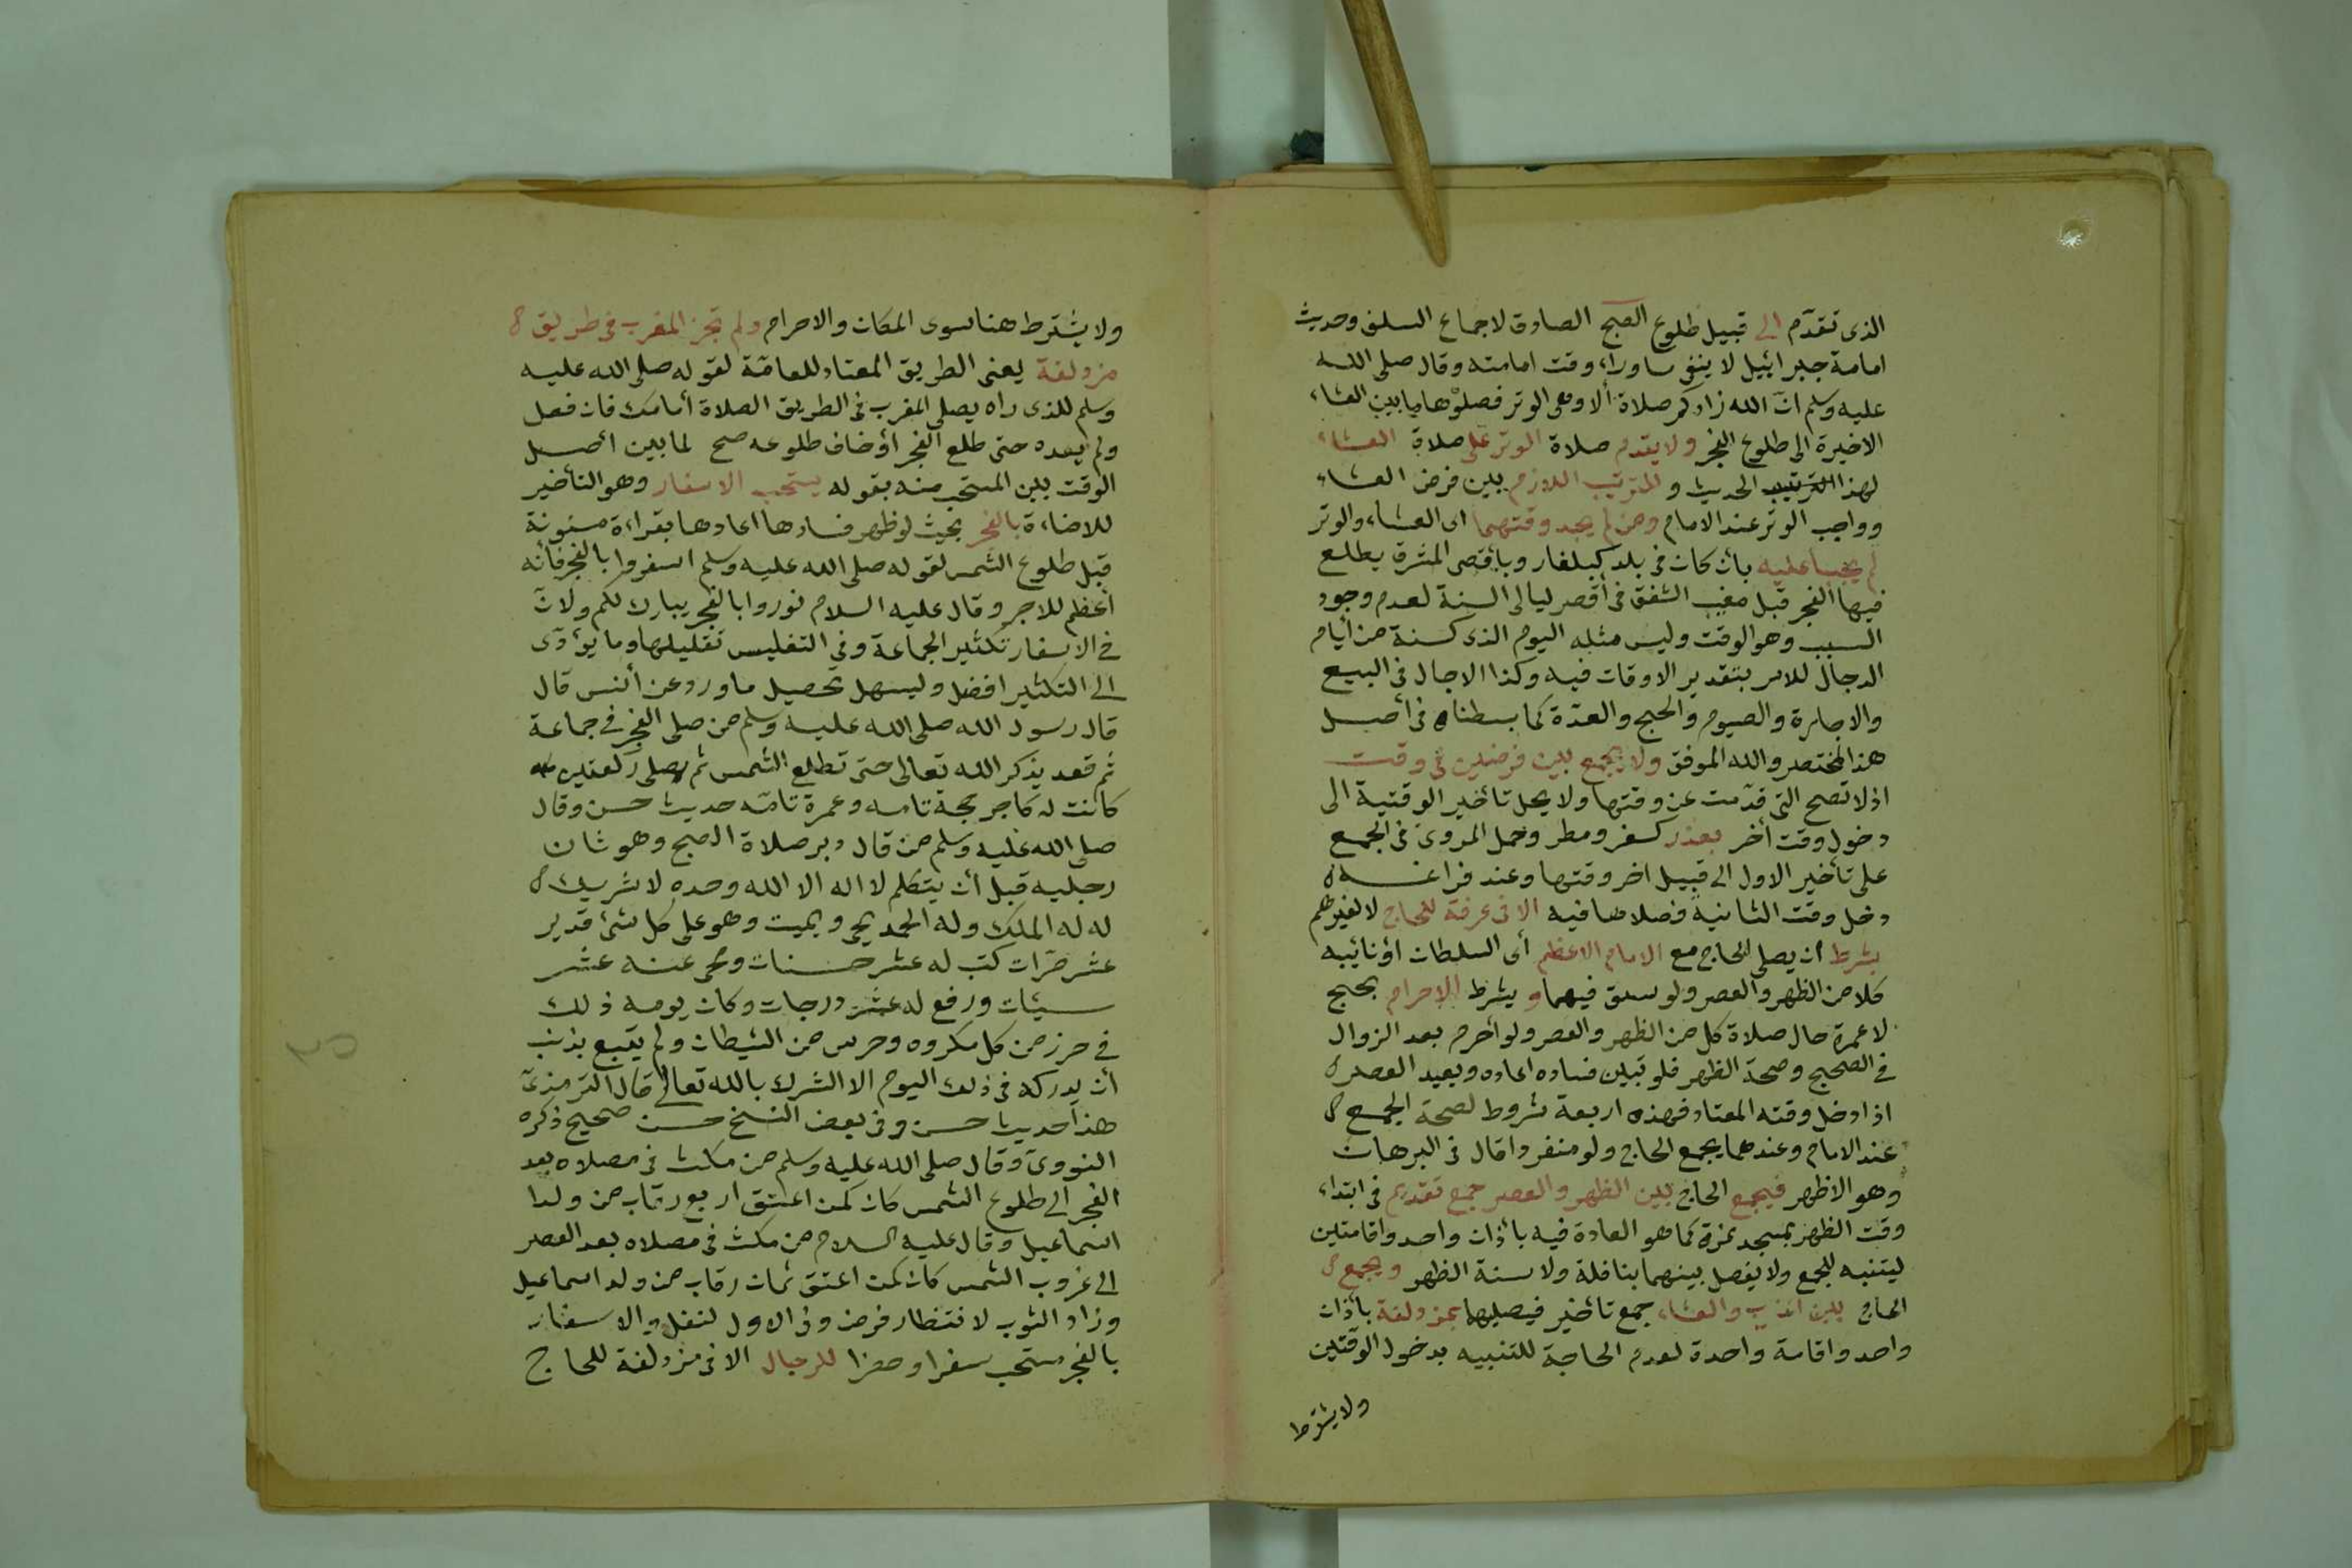 الذى تقدّم الى قبيل طلوع الصبح الصادق لاجماع السلف وحديث
امامة جبرائيل لا ينفى ما وراء وقت امامته وقال صلى الله
عليه وسلم انّ الله زادكم صلاة ألا وهى الوتر فصلوها ما بين العشاء
الاخيرة الى طلوع الفجر ولا يقدم صلاة الوتر على صلاة العشاء
لهذا الحديث و للترتيب اللازم بين فرض العشاء
وواجب الوتر عند الامام ومن لم يجد وقتهما اى العشاء والوتر
لم يجبا عليه بأن كان فى بلد كبلغار وبأقصى المشرق يطلع
فيها الفجر قبل مغيب الشفق فى أقصر ليالى السنة لعدم وجود
السبب وهو الوقت وليس مثله اليوم الذى كسنة من أيام
الدجال للامر بتقدير الاوقات فيه وكذا الاجال فى البيع
والاجارة والصوم والحج والعدّة كما بسطناه فى أصل
هذا المختصر والله الموفق ولا يجمع بين فرضين فى وقت
اذ لا تصح التى قدّمت عن وقتها ولا يحل تأخير الوقتية الى
دخول وقت أخر بعذر كسفر ومطر وحمل المروىّ فى الجمع
على تأخير الاول الى قبيل اخر وقتها وعند فراغه
دخل وقت الثانية فصلاها فيه الا فى عرفة للحاج لا لغيرهم
بشرط أن يصلى الحاج مع الامام الاعظم أى السلطان أو نائبه
كلا من الظهر والعصر ولو سبق فيهما و بشرط الاحرام بحج
لا عمرة حال صلاة كل من الظهر والعصر ولو أحرم بعد الزوال
فى الصحيح وصحة الظهر فلو تبين فساده اعاده ويعيد العصر
اذا دخل وقته المعتاد فهذه اربعة شروط لصحة الجمع
عند الامام وعندهما يجمع الحاج ولو منفردا قال فى البرهان
وهو الاظهر فيجمع الحاج بين الظهر والعصر جمع تقديم فى ابتداء
وقت الظهر بمسجد نمرة كما هو العادة فيه بأذان واحد واقامتين
ليتنبه للجمع ولا يفصل بينهما بنافلة ولا سنة الظهر ويجمع
الحاج بين المغرب والعشاء جمع تأخير فيصليهما بمزدلفة بأذان
واحد واقامة واحدة لعدم الحاجة للتنبيه بدخول الوقتين
ولا يشترط
ولا يشترط هنا سوى المكان والاحرام ولم تجز المغرب فى طريق
مزدلفة يعنى الطريق المعتاد للعامّة لقوله صلى الله عليه
وسلم للذى راه يصلى المغرب فى الطريق الصلاة أمامك فان فعل
ولم يعده حتى طلع الفجر أو خاف طلوعه صح لما بين أصل
الوقت بين المستحب منه بقوله يستحب الاسفار وهو التأخير
للاضاءة بالفجر بحيث لو ظهر فسادها اعادها بقراءة مسنونة
قبل طلوع الشمس لقوله صلى الله عليه وسلم اسفروا بالفجر فأنه
أعظم للاجر وقال عليه السلام نوروا بالفجر يبارك لكم ولانّ
فى الاسفار تكثير الجماعة وفى التغليس تقليلها وما يؤدّى
الى التكثير افضل وليسهل تحصيل ما ورد عن أنس قال
قال رسول الله صلى الله عليه وسلم من صلى الفجر فى جماعة
ثم قعد يذكر الله تعالى حتى تطلع الشمس ثم يصلى ركعتين
كانت له كاجر حجة تامه وعمرة تامّه حديث حسن وقال
صلى الله عليه وسلم من قال دبر صلاة الصبح وهو ثان
رجليه قبل أن يتكلم لا اله الا الله وحده لا شريك
له له الملك وله الحمد يحى ويميت وهو على كل شئ قدير
عشر مرّات كتب له عشر حسنات ومحى عنه عشر
سيئات ورفع له عشر درجات وكان يومه ذلك
فى حرز من كل مكروه وحرس من الشيطان ولم يتبع بذنب
أن يدركه فى ذلك اليوم الا الشرك بالله تعالى قال الترمذىّ
هذا حديث حسن وفى بعض النسخ حسن صحيح ذكره
النووىّ وقال صلى الله عليه وسلم من مكث فى مصلاه بعد
الفجر الى طلوع الشمس كان كمن اعتق اربع رقاب من ولد
اسماعيل وقال عليه السلام من مكث فى مصلاه بعد العصر
الى غروب الشمس كان كمن اعتق ثمان رقاب من ولد اسماعيل
وزاد الثوب لانتظار فرض وفى الاول لنفل والاسفار
بالفجر مستحب سفرا وحضرا للرجال الا فى مزدلفة للحاج